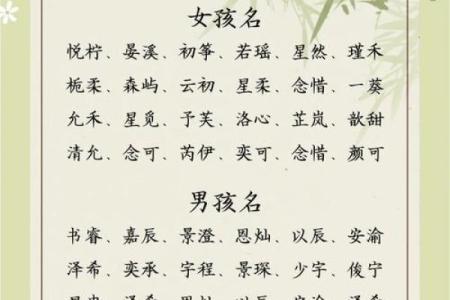 女孩名
悦柠、晏溪、初筝、若瑶、星然、瑾禾
栀柔、森屿、云初、星柔、念惜、一葵
允禾、星觅、予芙、洛心、芷岚、歆甜
清允、念可、芮伊、奕可、念惜、颜可
男孩名
书睿、嘉辰、景澄、恩灿、以辰、安渝
泽希、奕承、宇程、景琛、少宇、俊宁